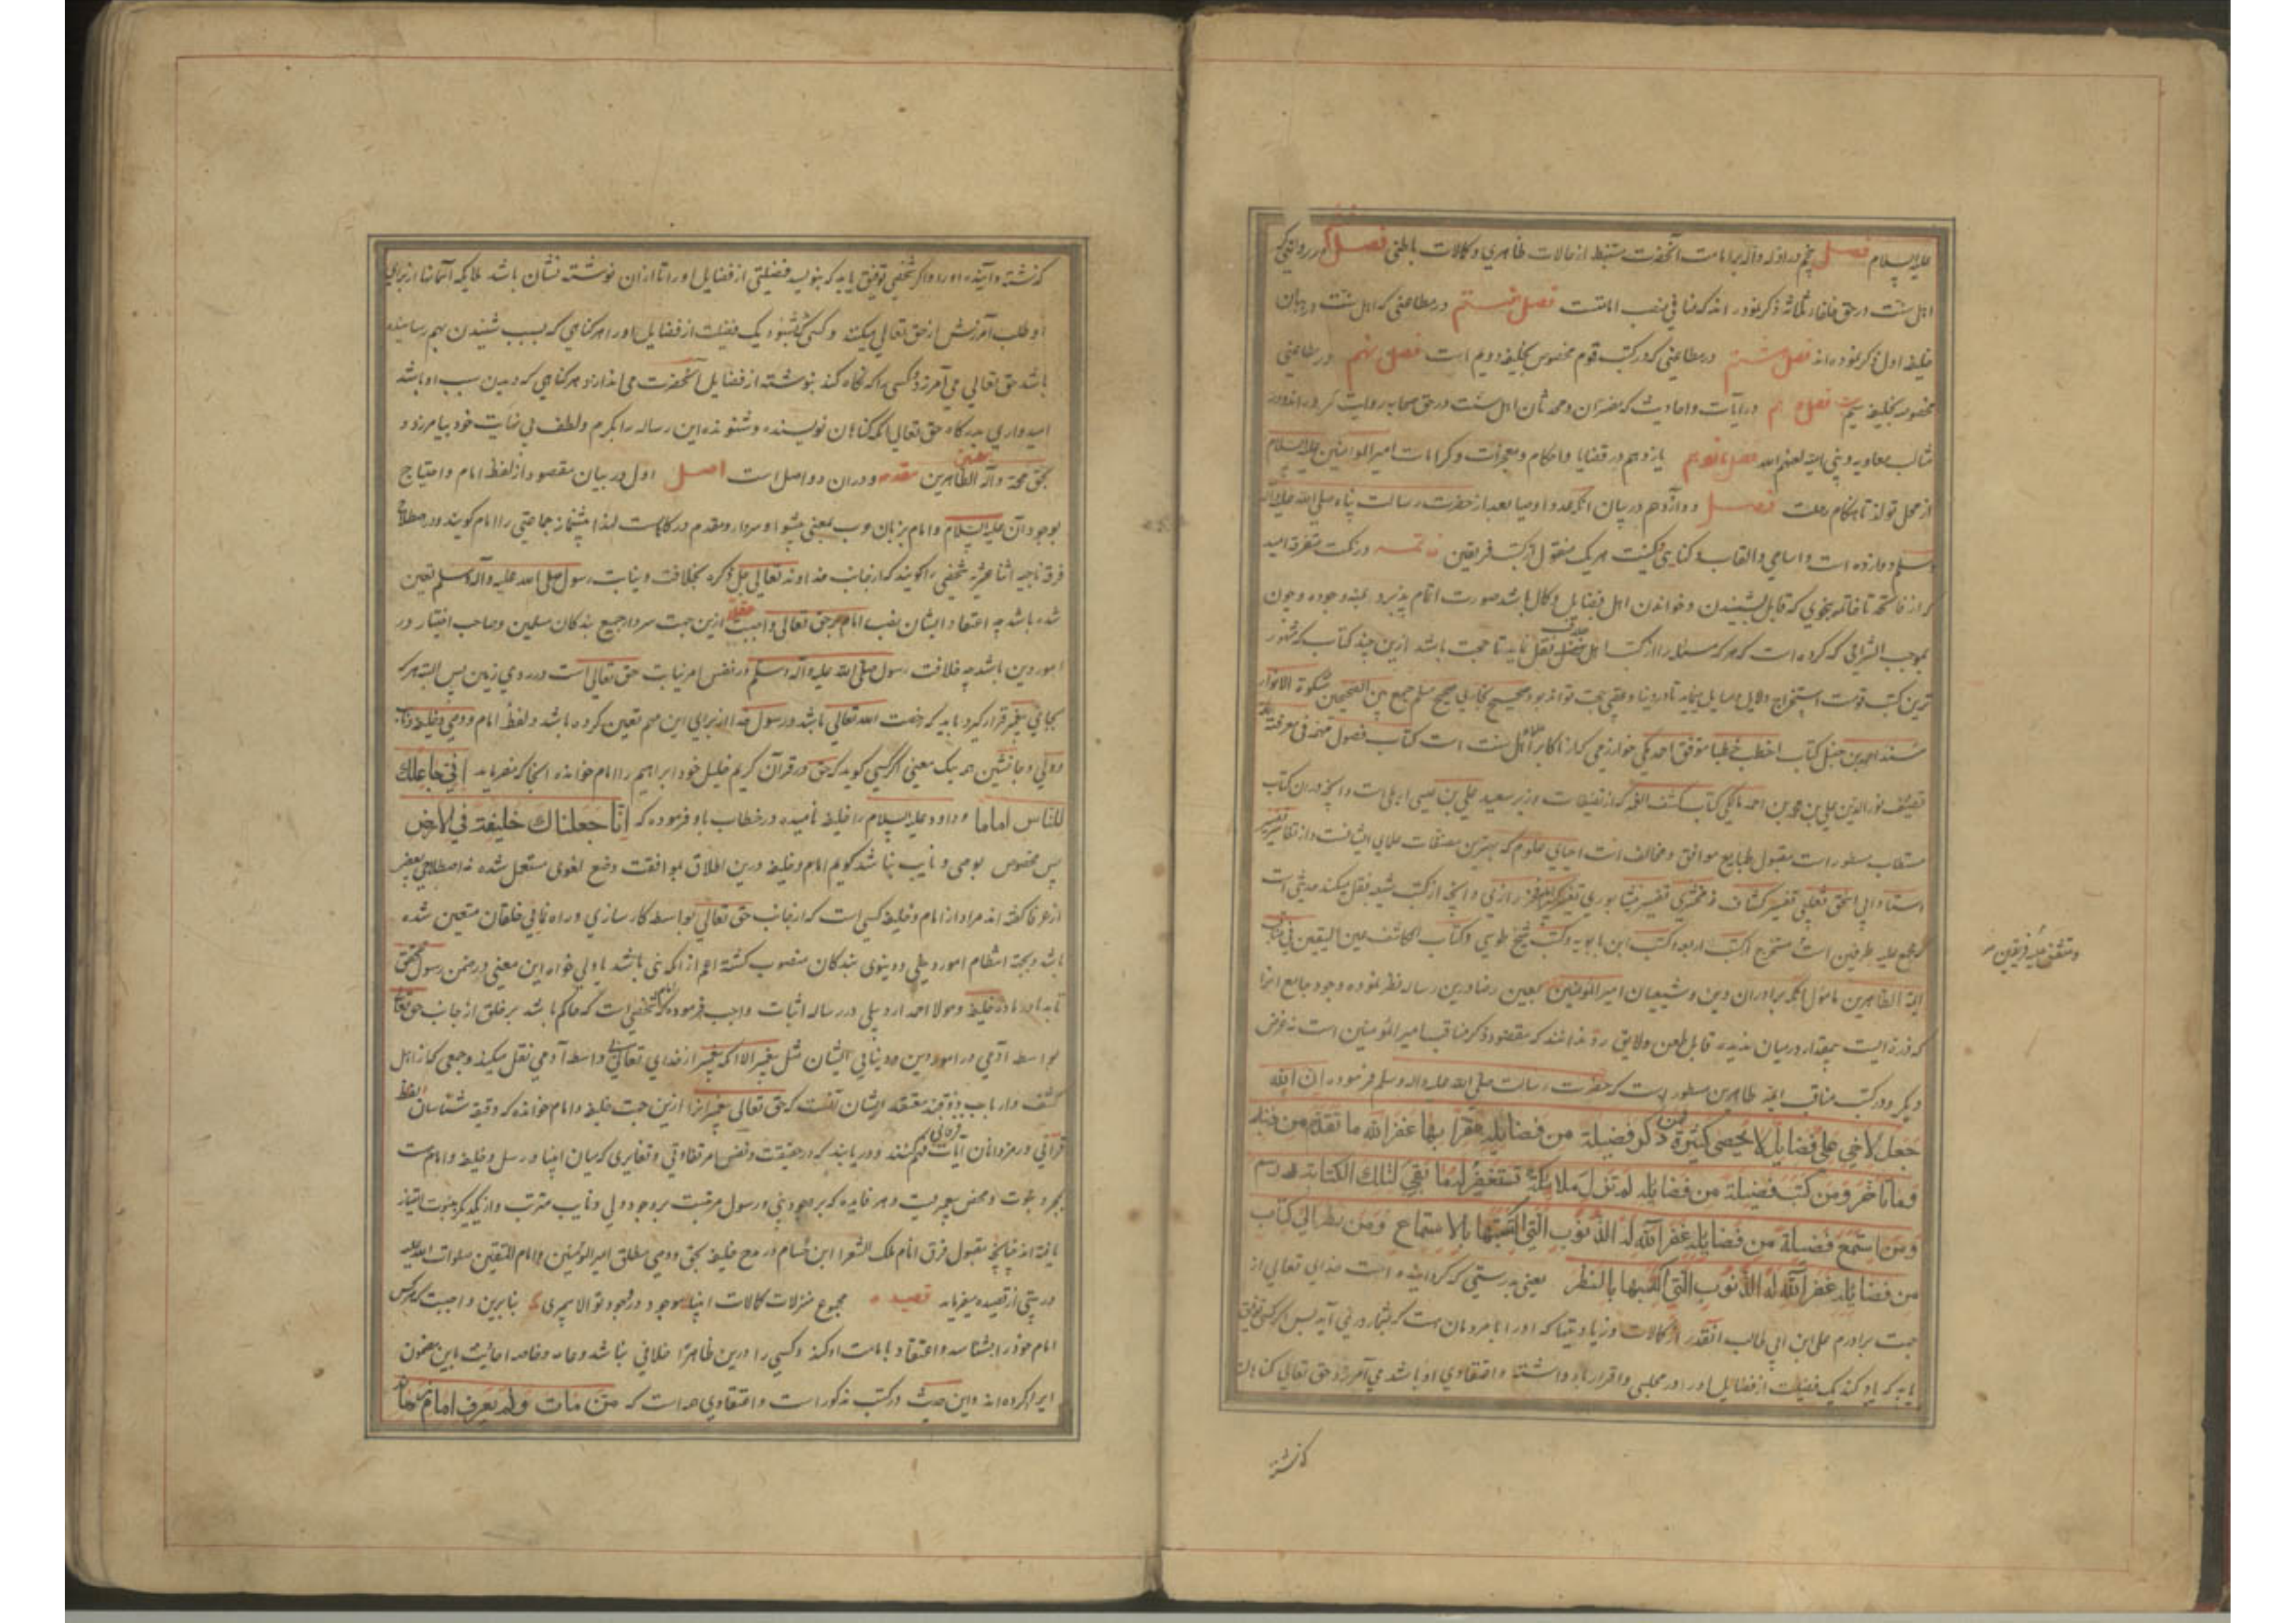 علیه السلام فصل پنجم در ادله داله بر امامت آنحضرت مستنبط از حالات ظاهری و کمالات باطنی فصل در روایتی که
اهل سنت در حق خلفاء ثلثه ذکر نموده اند که منافی منصب امامتست فصل هفتم در مطاعنی که اهل سنت در بیان
خلیفه اول ذکر نموده اند فصل هشتم در مطاعنی که در کتب قوم مخصوص بخلیفه دویم است فصل نهم در مطاعنی
مخصوصه بخلیفه سیم فصل دهم در آیات و احادیث که مفسران و محدثان اهل سنت در حق صحابه روایت کرده اند و در
مثالب معاویه و بنی امیه لعنهم الله فصل یازدهم در قضایا و احکام و معجزات و کرامات امیر المومنین علیه السلام
از محل تولد تا هنگام رحلت فصل دوازدهم در بیان آنکه عدد اوصیا بعد از حضرت رسالت پناه صلی الله علیه و آله
وسلم دوازده است و اسامی و القاب و کنای و کنیت هر یک منقول از کتب فریقین تتمه در نکت متفرقه امید
که از فاتحه تا خاتمه بنحوی که قابل شنیدن و خواندن اهل فضایل و کمال باشد صورت اتمام پذیرد بمنه و جوده و چون
بموجب التزامی که کرده است که هر مسئله را از کتب اهل نقل نماید تا حجت باشد ازین چند کتاب که مشهور
ترین کتب قومست استخراج دلایل و مسایل مینماید تا در دنیا و عقبی حجت تواند بود صحیح بخاری صحیح مسلم جمع بین الصحیحین مشکوة الانوار
مسند احمد بن حنبل کتاب اخطب خطبا موفق احمد مکی خوارزمی که از اکابر علماء اهل سنت است کتاب فصول مهمه فی معرفة الائمه
تصنیف نور الدین علی بن محمد بن احمد مالکی کتاب کشف الغمه که از تصنیفات وزیر سعید علی بن عیسی اربلی است و آنچه در ان کتاب
مستطاب مسطور است مقبول طبایع موافق و مخالف است احیای علوم که بهترین مصنفات علمای ایشانست و از تفاسیر تفسیر
استاد ابی اسحق ثعلبی تفسیر کشاف زمخشری تفسیر نیشابوری تفسیر کبیر امام فخر رازی و آنچه از کتب شیعه نقل میکند حدیثی است
که مجمع علیه طرفین است مستخرج از کتب اربعه و کتب ابن بابویه و کتب شیخ طوسی و کتاب الکاشف عین الیقین فی مناقب
و متفق علیه فریقین
ایمة الطاهرین مامول آنکه برادران دین و شیعیان امیر المومنین بعین رضا درین رساله نظر نموده وجود جامع انرا
که ذره ایست بیمقدار در میان ندیده قابل طعن و لایق رد ندانند که مقصود ذکر مناقب امیر المؤمنین است نه غرض
دیگر و در کتب مناقب ایمه طاهرین مسطور است که حضرت رسالت صلی الله علیه واله وسلم فرموده ان الله
جعل لاخی علی فضایل لا تحصی کثیرة فمن ذکر فضیلة من فضایله مقرا بها غفر الله ما تقدم من ذنبه
وما تاخر و من کتب فضیلة من فضایله لم تزل ملائکة تستغفر له ما بقی لتلک الکتابة رسم
ومن استمع فضیلة من فضایله غفر الله له الذنوب التی اکتسبها بالاستماع ومن نظر الی کتاب
من فضایله غفر الله له الذنوب التی اکتسبها بالنظر یعنی بدرستی که گردانیده است خدای تعالی از
جهت برادرم علی ابن ابی طالب آنقدر از کمالات و زیادتیها که اورا با مردمان هست که بشمار در نمی آید پس اگر کسی توفیق
یابد که یاد کند یک فضیلت از فضایل اورا در مجلسی و اقرار بان داشته و اعتقادی او باشد می آمرزد حق تعالی گناهان
گذشته
گذشته و آینده اورا و اگر شخصی توفیق یابد که بنویسد فضیلتی از فضایل اورا تا ازان نوشته نشان باشد ملایکه آسمانها از برای
او طلب آمرزش از حق تعالی میکنند و کسی که بشنود یک فضیلت از فضایل اورا هر گناهی که بسبب شنیدن بهم رسانیده
باشد حق تعالی می آمرزد و کسی را که نگاه کند بنوشته از فضایل آنحضرت می اندازد هر گناهی که دیدن سبب او باشد
امیدواری بدرگاه حق تعالی آنکه گناهان نویسنده و شنونده این رساله را بکرم و لطف بی نهایت خود بیامرزد
بحق محمد و آله الطاهرین مقدمه و دران دو اصل است اصل اول در بیان مقصود از لفظ امام و احتیاج
بوجود آن علیه السلام و امام بزبان عرب بمعنی پیشوا و سردار و مقدم در کارهاست لهذا پیشنماز جماعتی را امام گویند و در اصطلاح
فرقه ناجیه اثنا عشریه شخصی را گویند که از جانب خداوند تعالی جل ذکره بخلافت و نیابت رسول صلی الله علیه واله وسلم تعین
شده باشد چه اعتقاد ایشان نصب امام بر حق تعالی واجبست عقلا ازین جهت سردار جمیع بندگان مسلمین و صاحب اختیار در
امور دین باشد چه خلافت رسول صلی الله علیه واله وسلم در نفس امر نیابت حق تعالی است در روی زمین پس البته هر که
بجای پیغمبر قرار گیرد باید که رخصت الله تعالی باشد و رسول خدا از برای این مهم تعین کرده باشد و لفظ امام و وصی و خلیفه و نایب
و ولی و جانشین همه یک معنی اگر کسی گوید که حق در قرآن کریم خلیل خود ابراهیم را امام خوانده آنجا که میفرماید انی جاعلک
للناس اماما و داود علیه السلام را خلیفه نامیده در خطاب باو فرموده که انا جعلناک خلیفة فی الارض
پس مخصوص بوصی و نایب نباشد گویم امام و خلیفه درین اطلاق بموافقت وضع لغوی مستعمل شده نه اصطلاحی بعضی
از عرفا گفته اند مراد از امام و خلیفه کسی است که از جانب حق تعالی بواسطه کارسازی و راه نمائی خلقان متعین شده
باشد و بجهة انتظام امور دینی و دنیوی بندگان منصوب گشته اعم از آنکه نبی باشد یا ولی خواه این معنی در ضمن رسول متحقق
خلیفه و مولا احمد اردبیلی در رساله اثبات واجب فرموده که امام شخصی است که حاکم باشد بر خلق از جانب حق تعالی
بواسطه آدمی در امور دین و دنیای ایشان مثل پیغمبر الا آنکه پیغمبر از خدای تعالی بیواسطه آدمی نقل میکند و جمعی که از اهل
کشف و ارباب ذوقند معتقد ایشان آنست که حق تعالی پیغمبر انرا ازین جهت خلیفه و امام خوانده که دقیقه شناسان لفظ
قرآنی و رمزدانان آیات فرقانی فهم کنند و دریابند که در حقیقت و نفس امر تفاوتی و تغایری که میان انبیا و رسل و خلیفه و امام هست
بمجرد نبوت و محض پیغمبریست و هر فایده که بر وجود نبی و رسول مرتبست بر وجود ولی و نایب مترتب و از یکدیگر بنبوت امتیاز
یافته اند چنانچه مقبول فرق انام ملک الشعرا ابن حسام در مدح خلیفه بحق و وصی مطلق امیر المؤمنین و امام المتقین صلوات الله علیه
در بیتی از قصیده میفرماید قصیده مجموع منزلات کمالات انبیا موجود در وجود تو الا پیمبری بنابرین واجبست که هر کس
امام خود را بشناسد و اعتقاد با مامت او کند و کسی را درین ظاهرا خلافی نباشد و عامه و خاصه احادیث باین مضمون
ایراد کرده اند و این حدیث در کتب مذکور است و اعتقادی همه است که من مات ولم یعرف امام زمانه